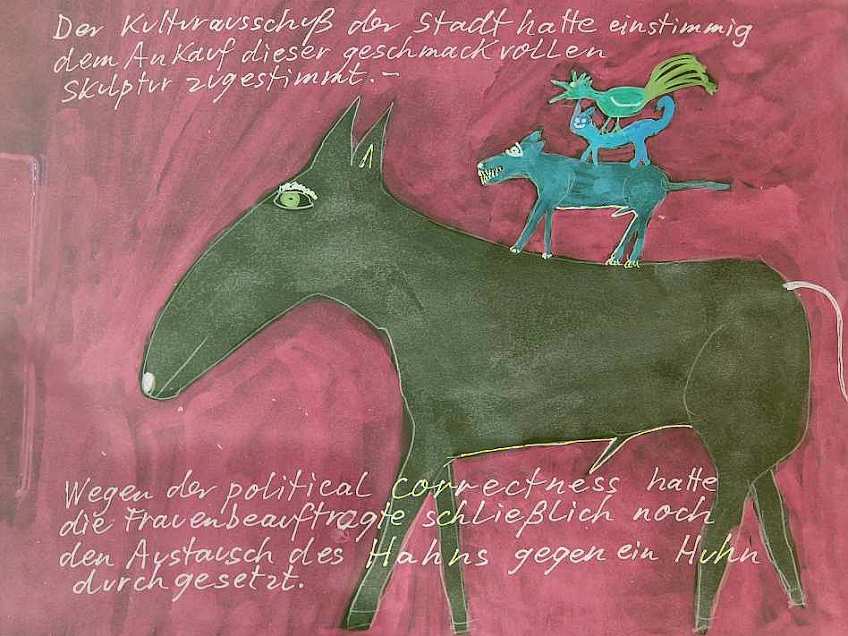 Der Kulturausschuß der Stadt hatte einstimmig
dem Ankauf dieser geschmackvollen
Skulptur zugestimmt.—
Wegen der political correctness hatte
die Frauenbeauftragte schließlich noch
den Austausch des Hahns gegen ein Huhn
durchgesetzt.